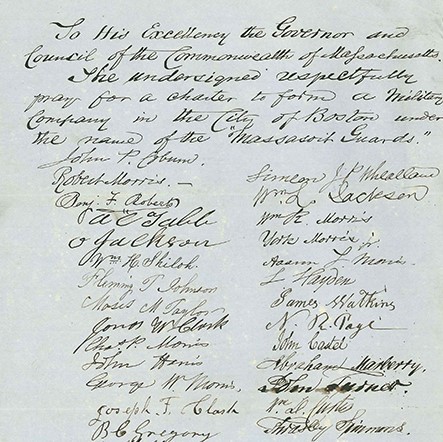 To His Excellency the Governor and
Council of the Commonwealth of Massachusetts.
The undersigned respectfully
pray for a charter to form a Military
Company in the City of Boston under
the name of the "Massasoit Guards."
John P. Coburn.
Robert Morris. —
Benj. F. Roberts
Wm. H. Shiloh
Fleming T Johnson
Moses M Taylor
Jonas W Clark
Chas K Morris
John Harris
George W Morris.
Joseph F. Clash
B C Gregory
Simeon J P
Wm L Jackson
Wm K. Morris
York Morris jr.
Aaron
L Hayden
James Watkins
N. R. Page
John Castel
Abraham Marberry.
Simmons.